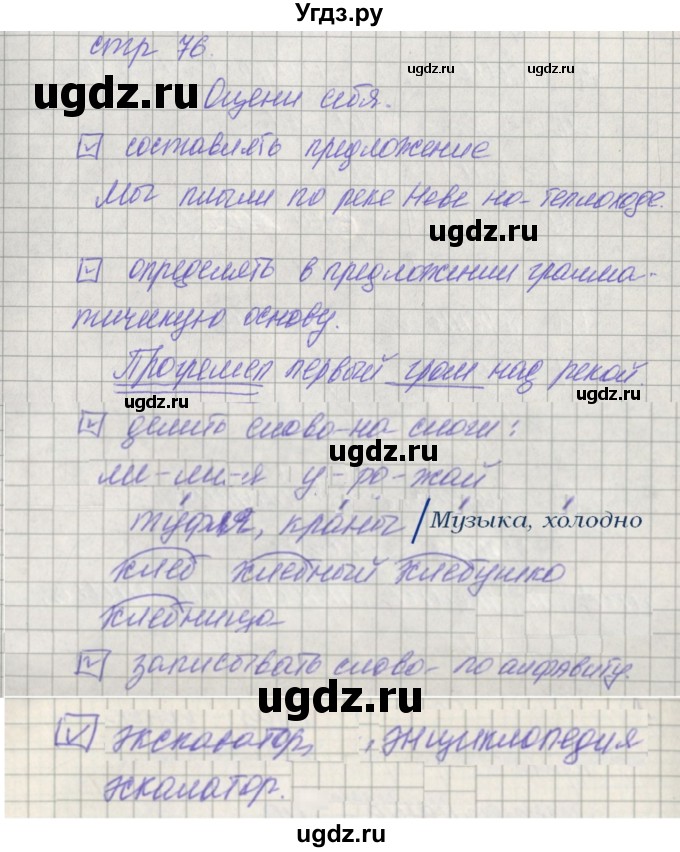 Угдз.ру
стр 76.
ugdz.ru
ugdz.ru
Оцени себя.
☑ составлять предложение
Мы плыли по реке Неве на теплоходе.
ugdz.ru
☑ определять в предложении грамма-
тическую основу.
ugdz.ru
Прогремел первый гром над рекой.
ugdz.ru
ugdz.ru
☑ делить слова на слоги:
ли-ни-я у-ро-жай
ту́фля, кра́ны / Му́зыка, хо́лодно
хлеб хлебный хлебушко
хлебница
☑ записывать слова по алфавиту.
ugdz.ru
ugdz.ru
☑ экскаватор, , энциклопедия
эскалатор.
ugdz.ru
ugdz.ru